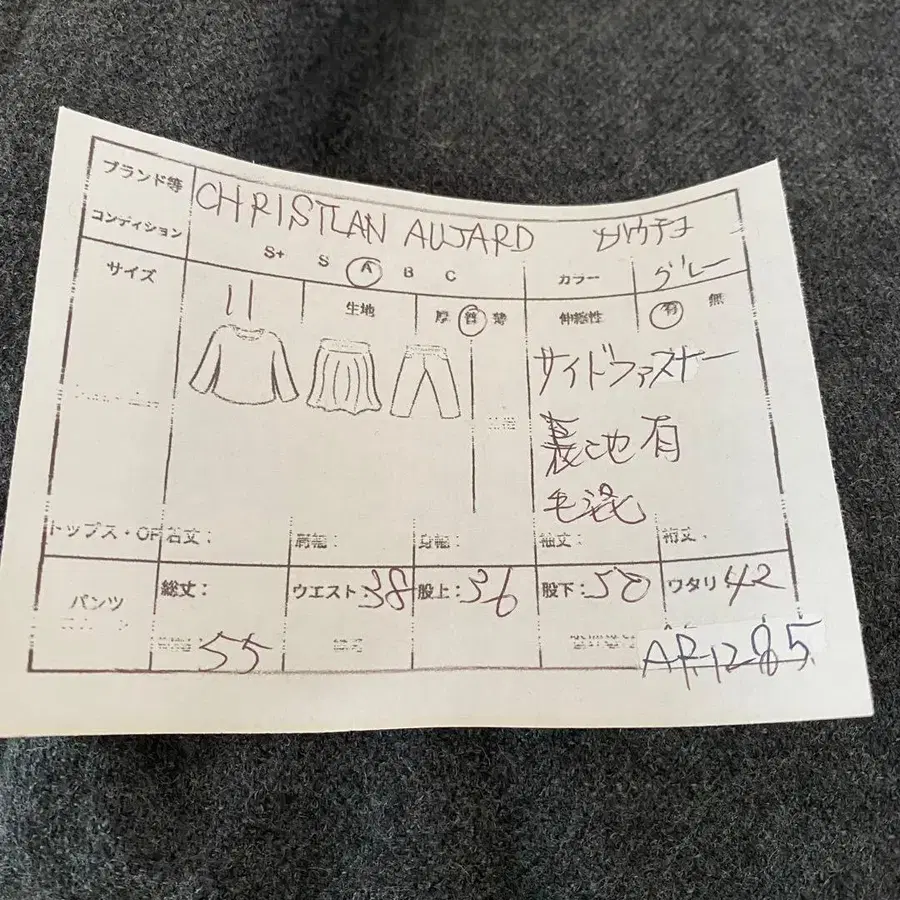 ブランド等 CHRISTIAN AUJARD ガウチョ
コンディション S+ S A B C カラー グレー
サイズ 生地 厚 普 薄 伸縮性 有 無
サイドファスナー
裏地有
毛混
トップス・OP 着丈: 肩幅: 身幅: 袖丈: 裄丈:
パンツ 総丈: ウエスト:38 股上:36 股下:50 ワタリ 42
55
AR-1285